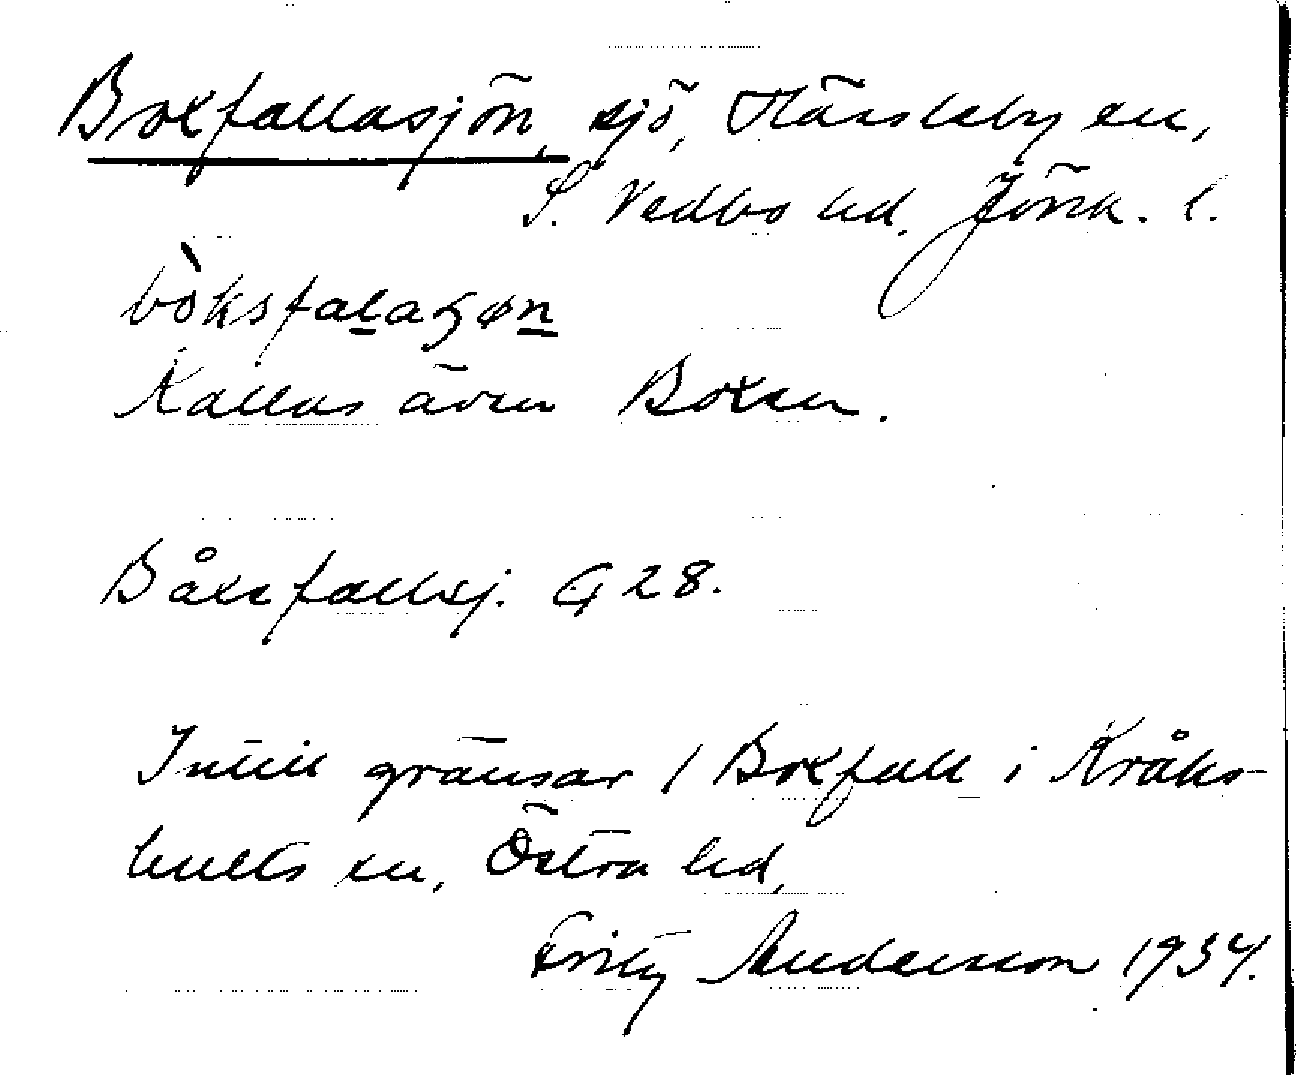 Bokfallasjön, sjö, Hässleby sn,
S. Vedbo hd. Jönk. l.
bòksfalaʒøn
Kallas även Boksen.
Båksfallsj. G 28.
Intill gränsar / Bokfall i Kråks-
hults sn, Östra hd,
Fritz Andersson 1934.